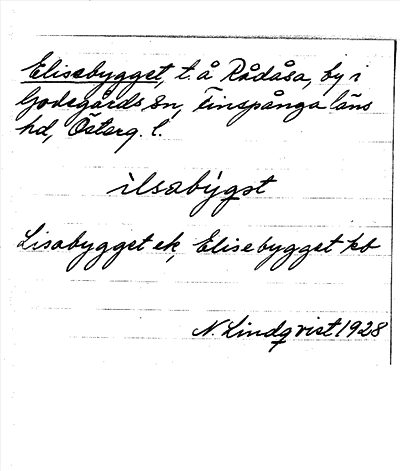 Elisabygget, t. å Rådåsa, by i
Godegårds sn, Finspånga läns
hd, Österg. l.
ìlsabýgət
Lisabygget ek, Elisebygget kb
N. Lindqvist 1928